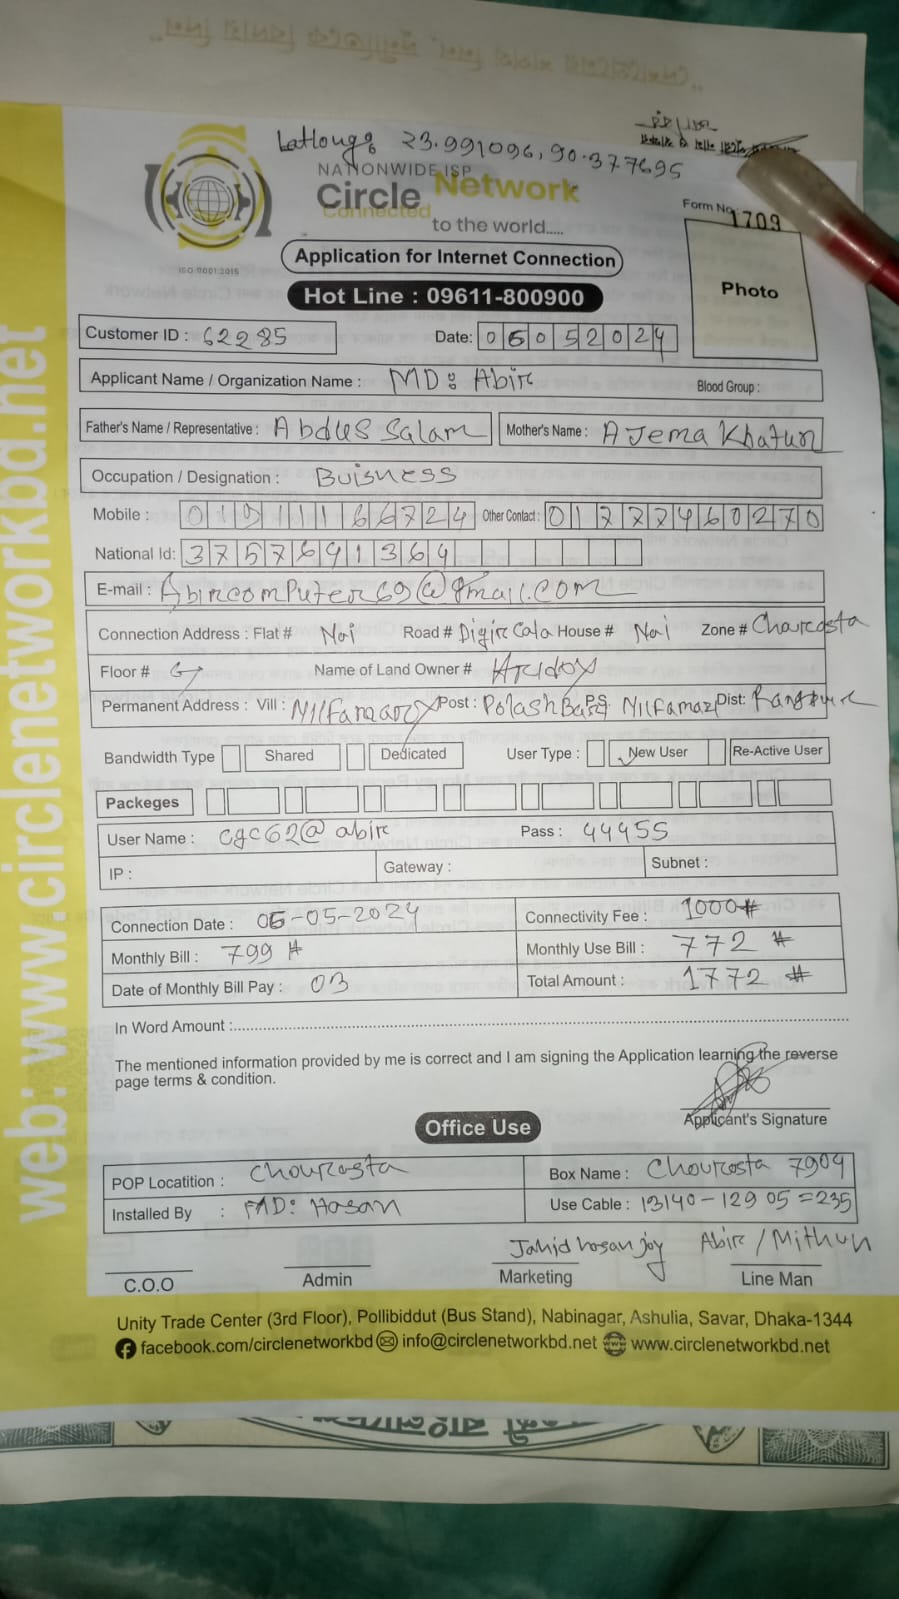 LatLong: 23.991096, 90.377695
NATIONWIDE ISP
Circle Network
Connected
to the world.....
ISO 9001:2015
Form No. 1709
Photo
Application for Internet Connection
Hot Line : 09611-800900
Customer ID : 62285 Date: 06052024
Applicant Name / Organization Name : MD: Abir Blood Group :
Father's Name / Representative : Abdus Salam Mother's Name : AJema Khatun
Occupation / Designation : Buisness
Mobile : 01911166724 Other Contact : 01777460270
National Id: 3757691364
E-mail : Abircomputer69@gmail.com
Connection Address : Flat # Nai Road # Digir Cala House # Nai Zone # Chourasta
Floor # G Name of Land Owner #
Permanent Address : Vill : Nilfamary Post : Polash Bari PS Nilfamari Dist: Rangpur
Bandwidth Type Shared Dedicated User Type : New User Re-Active User
Packeges
User Name : cgc62@abir Pass : 44455
IP : Gateway : Subnet :
Connection Date : 06-05-2024 Connectivity Fee : 1000#
Monthly Bill : 799 # Monthly Use Bill : 772 #
Date of Monthly Bill Pay : 03 Total Amount : 1772 #
In Word Amount :
The mentioned information provided by me is correct and I am signing the Application learning the reverse
page terms & condition.
Applicant's Signature
Office Use
POP Locatition : Chourasta Box Name : Chourasta 7904
Installed By : MD: Hasan Use Cable : 13140-12905=235
Jahid hasan joy Abir / Mithun
C.O.O Admin Marketing Line Man
Unity Trade Center (3rd Floor), Pollibiddut (Bus Stand), Nabinagar, Ashulia, Savar, Dhaka-1344
facebook.com/circlenetworkbd info@circlenetworkbd.net www.circlenetworkbd.net
web: www.circlenetworkbd.net